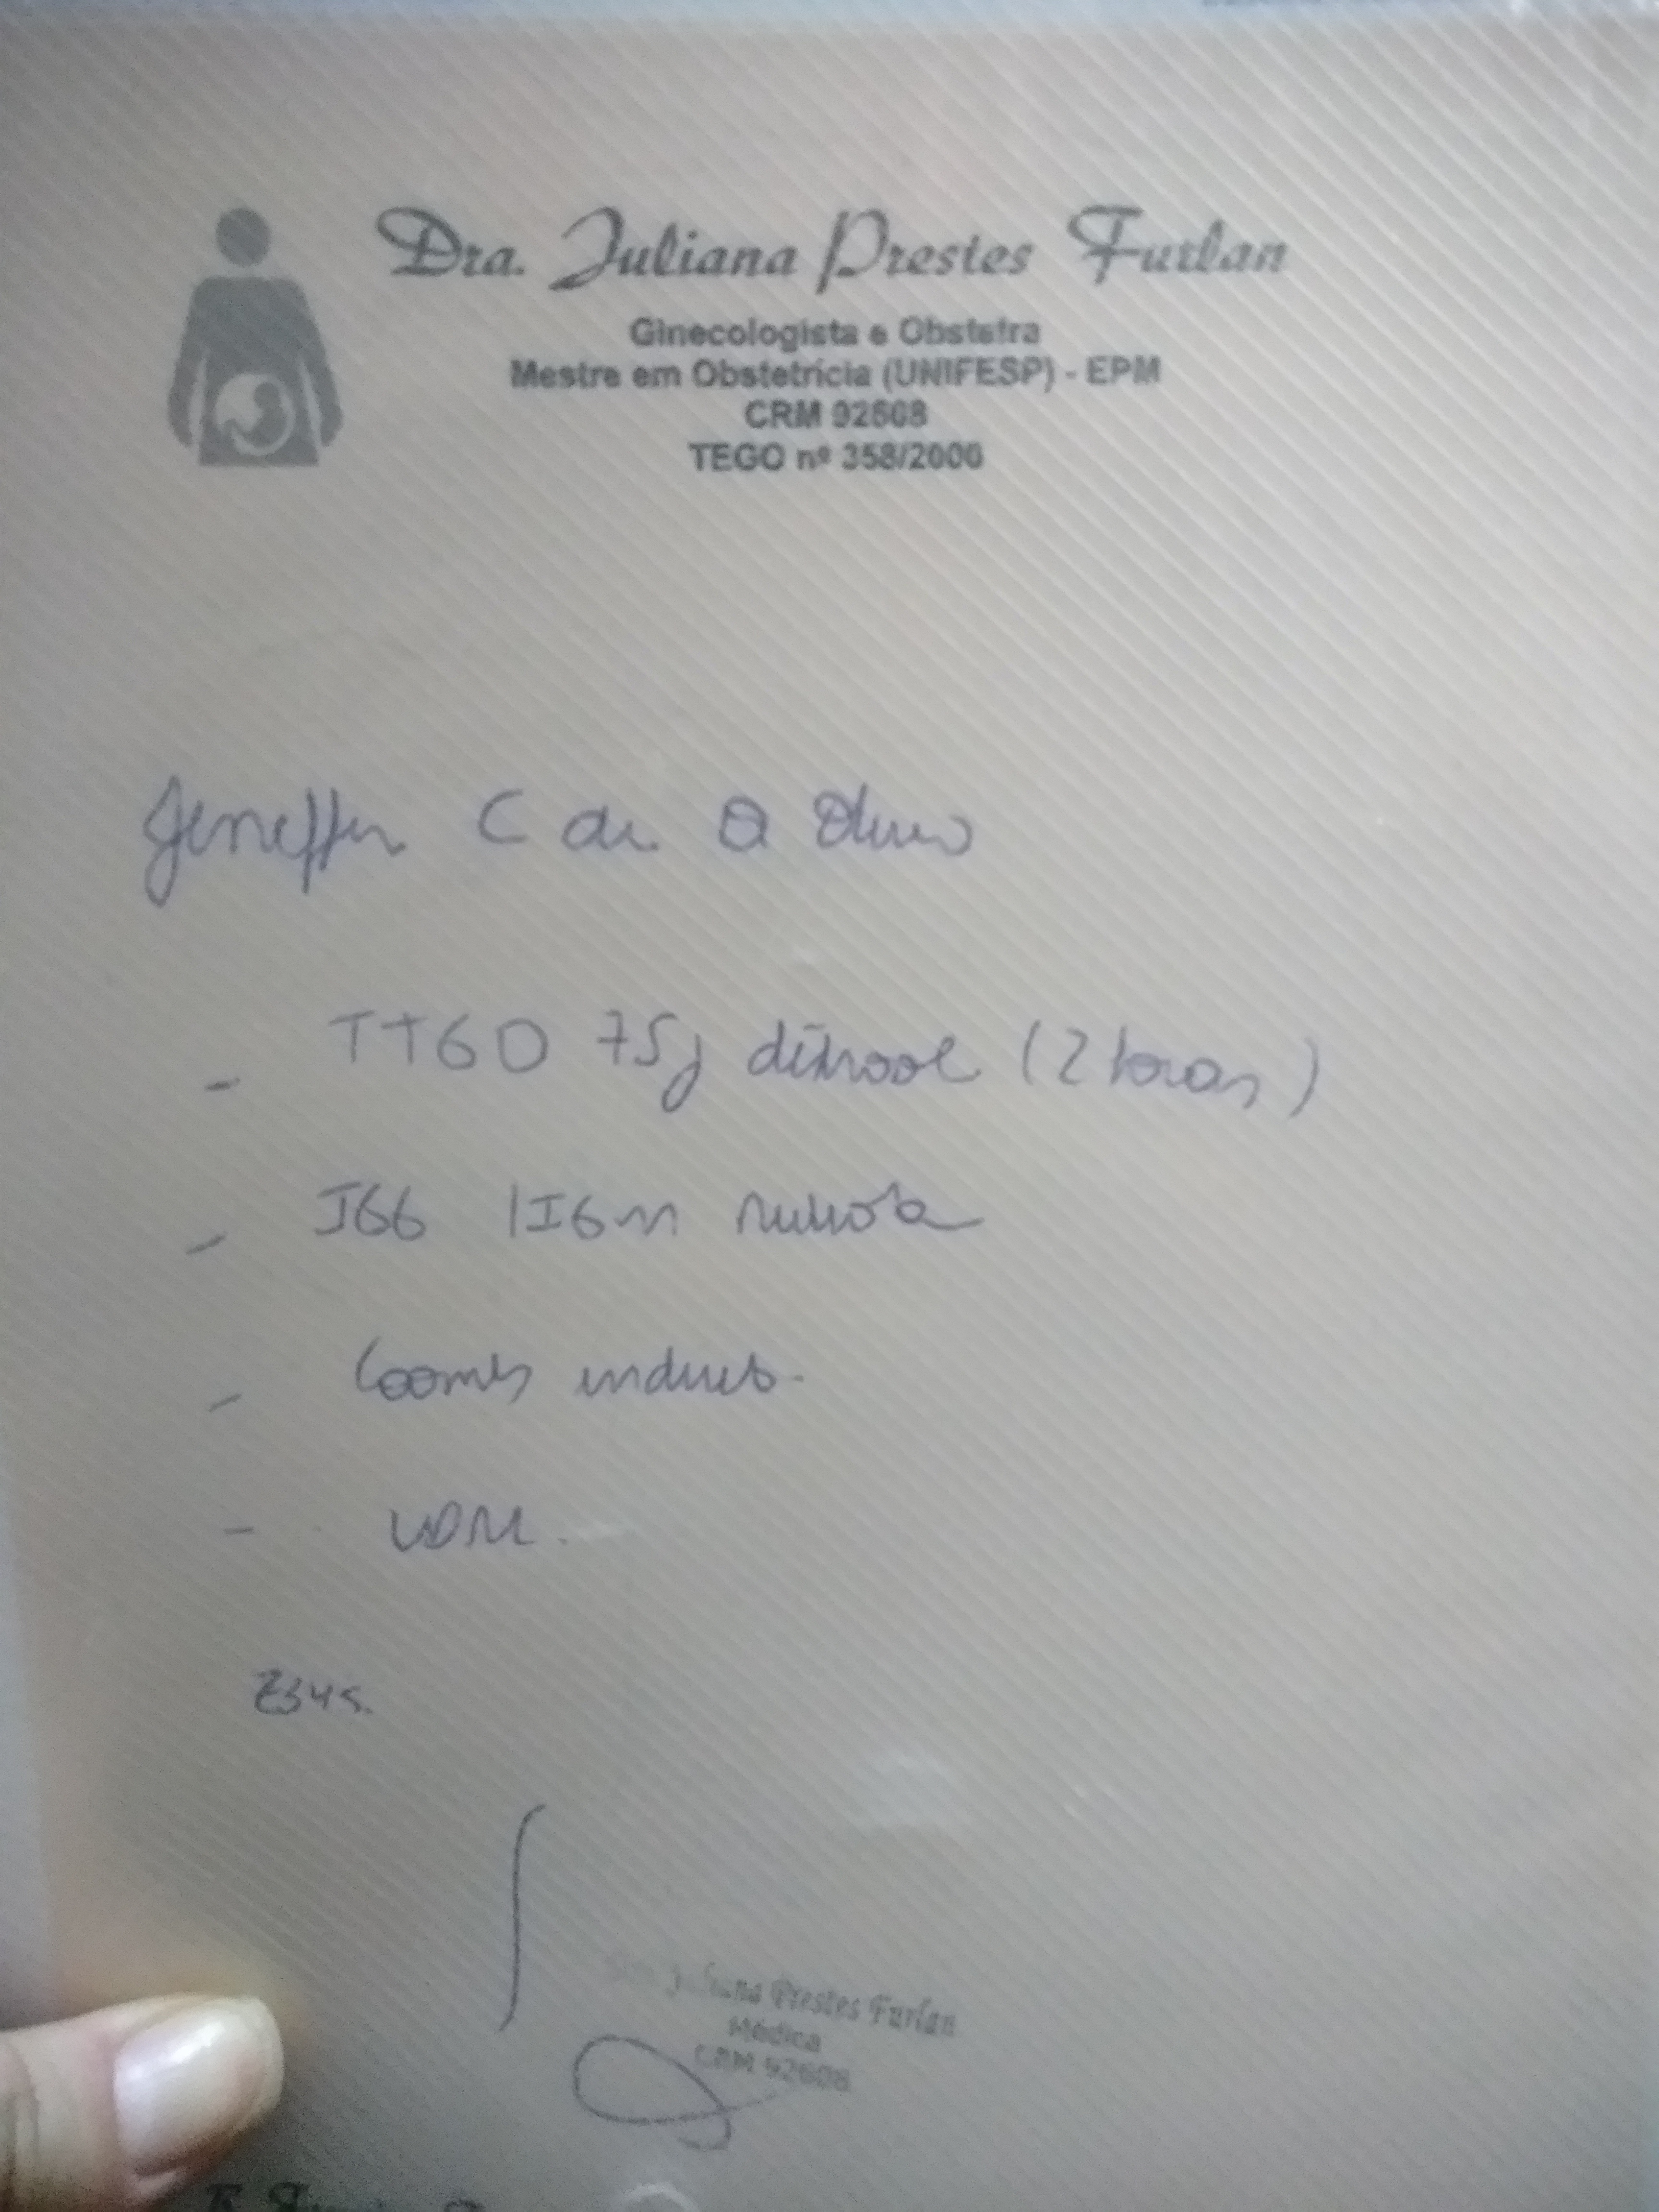 Dra. Juliana Prestes Furlan
Ginecologista e Obstetra
Mestre em Obstetrícia (UNIFESP) - EPM
CRM 92608
TEGO nº 358/2000
Jeneffer C de O
- TTGO 75g dextrosol (2 horas)
- IGG / IGM rubéola
- Coombs indireto.
- VDRL.
Z34.
Juliana Prestes Furlan
Médica
CRM 92608